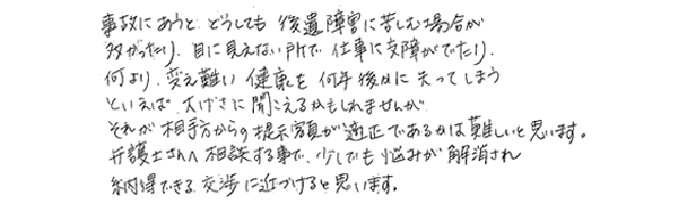 事故にあうと どうしても 後遺障害に苦しむ場合が
多かったり、目に見えない所で 仕事に支障がでたり、
何より、変え難い 健康を 何年後かに 失ってしまう
といえば 大げさに 聞こえるかもしれませんが
それが 相手方からの 提示額が 適正であるかは 難しいと思います。
弁護士さんへ 相談する事で、少しでも 悩みが 解消され
納得できる 交渉に近づけると思います。